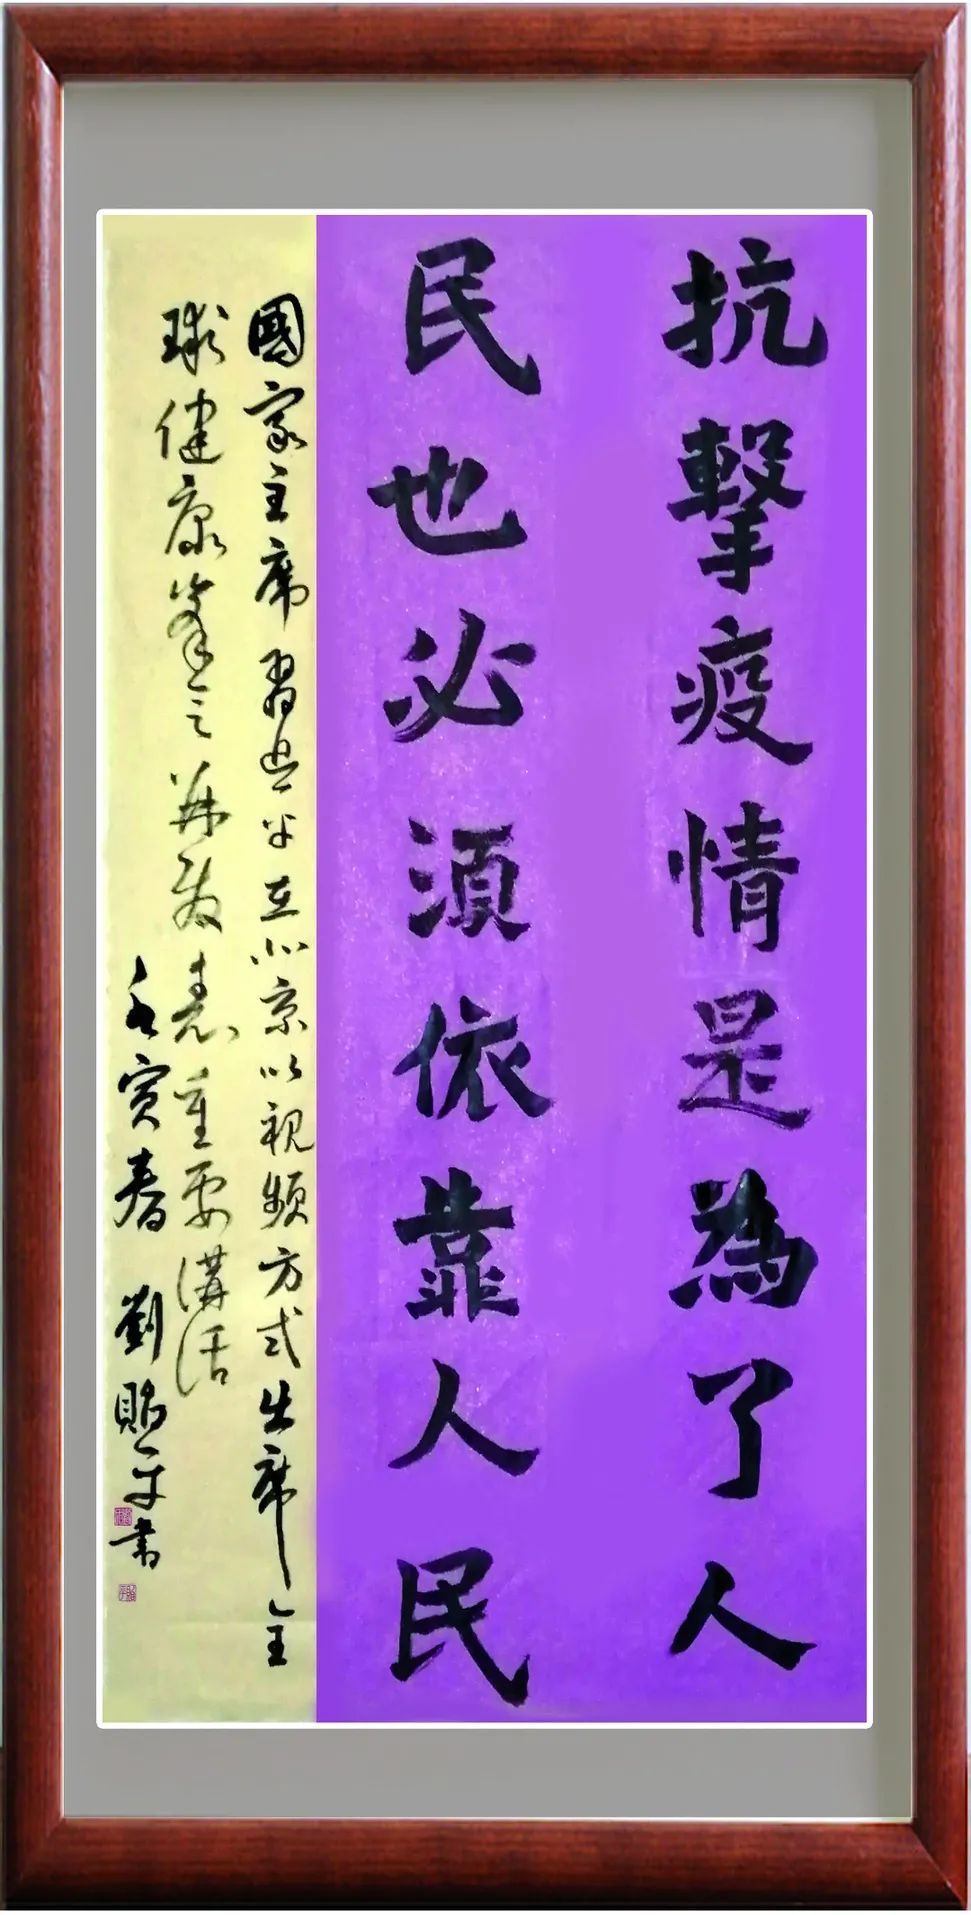 抗擊疫情是為了人
民也必須依靠人民
國家主席習近平在北京以視頻方式出席全
球健康峯会并發表重要講話
壬寅春 劉 平書